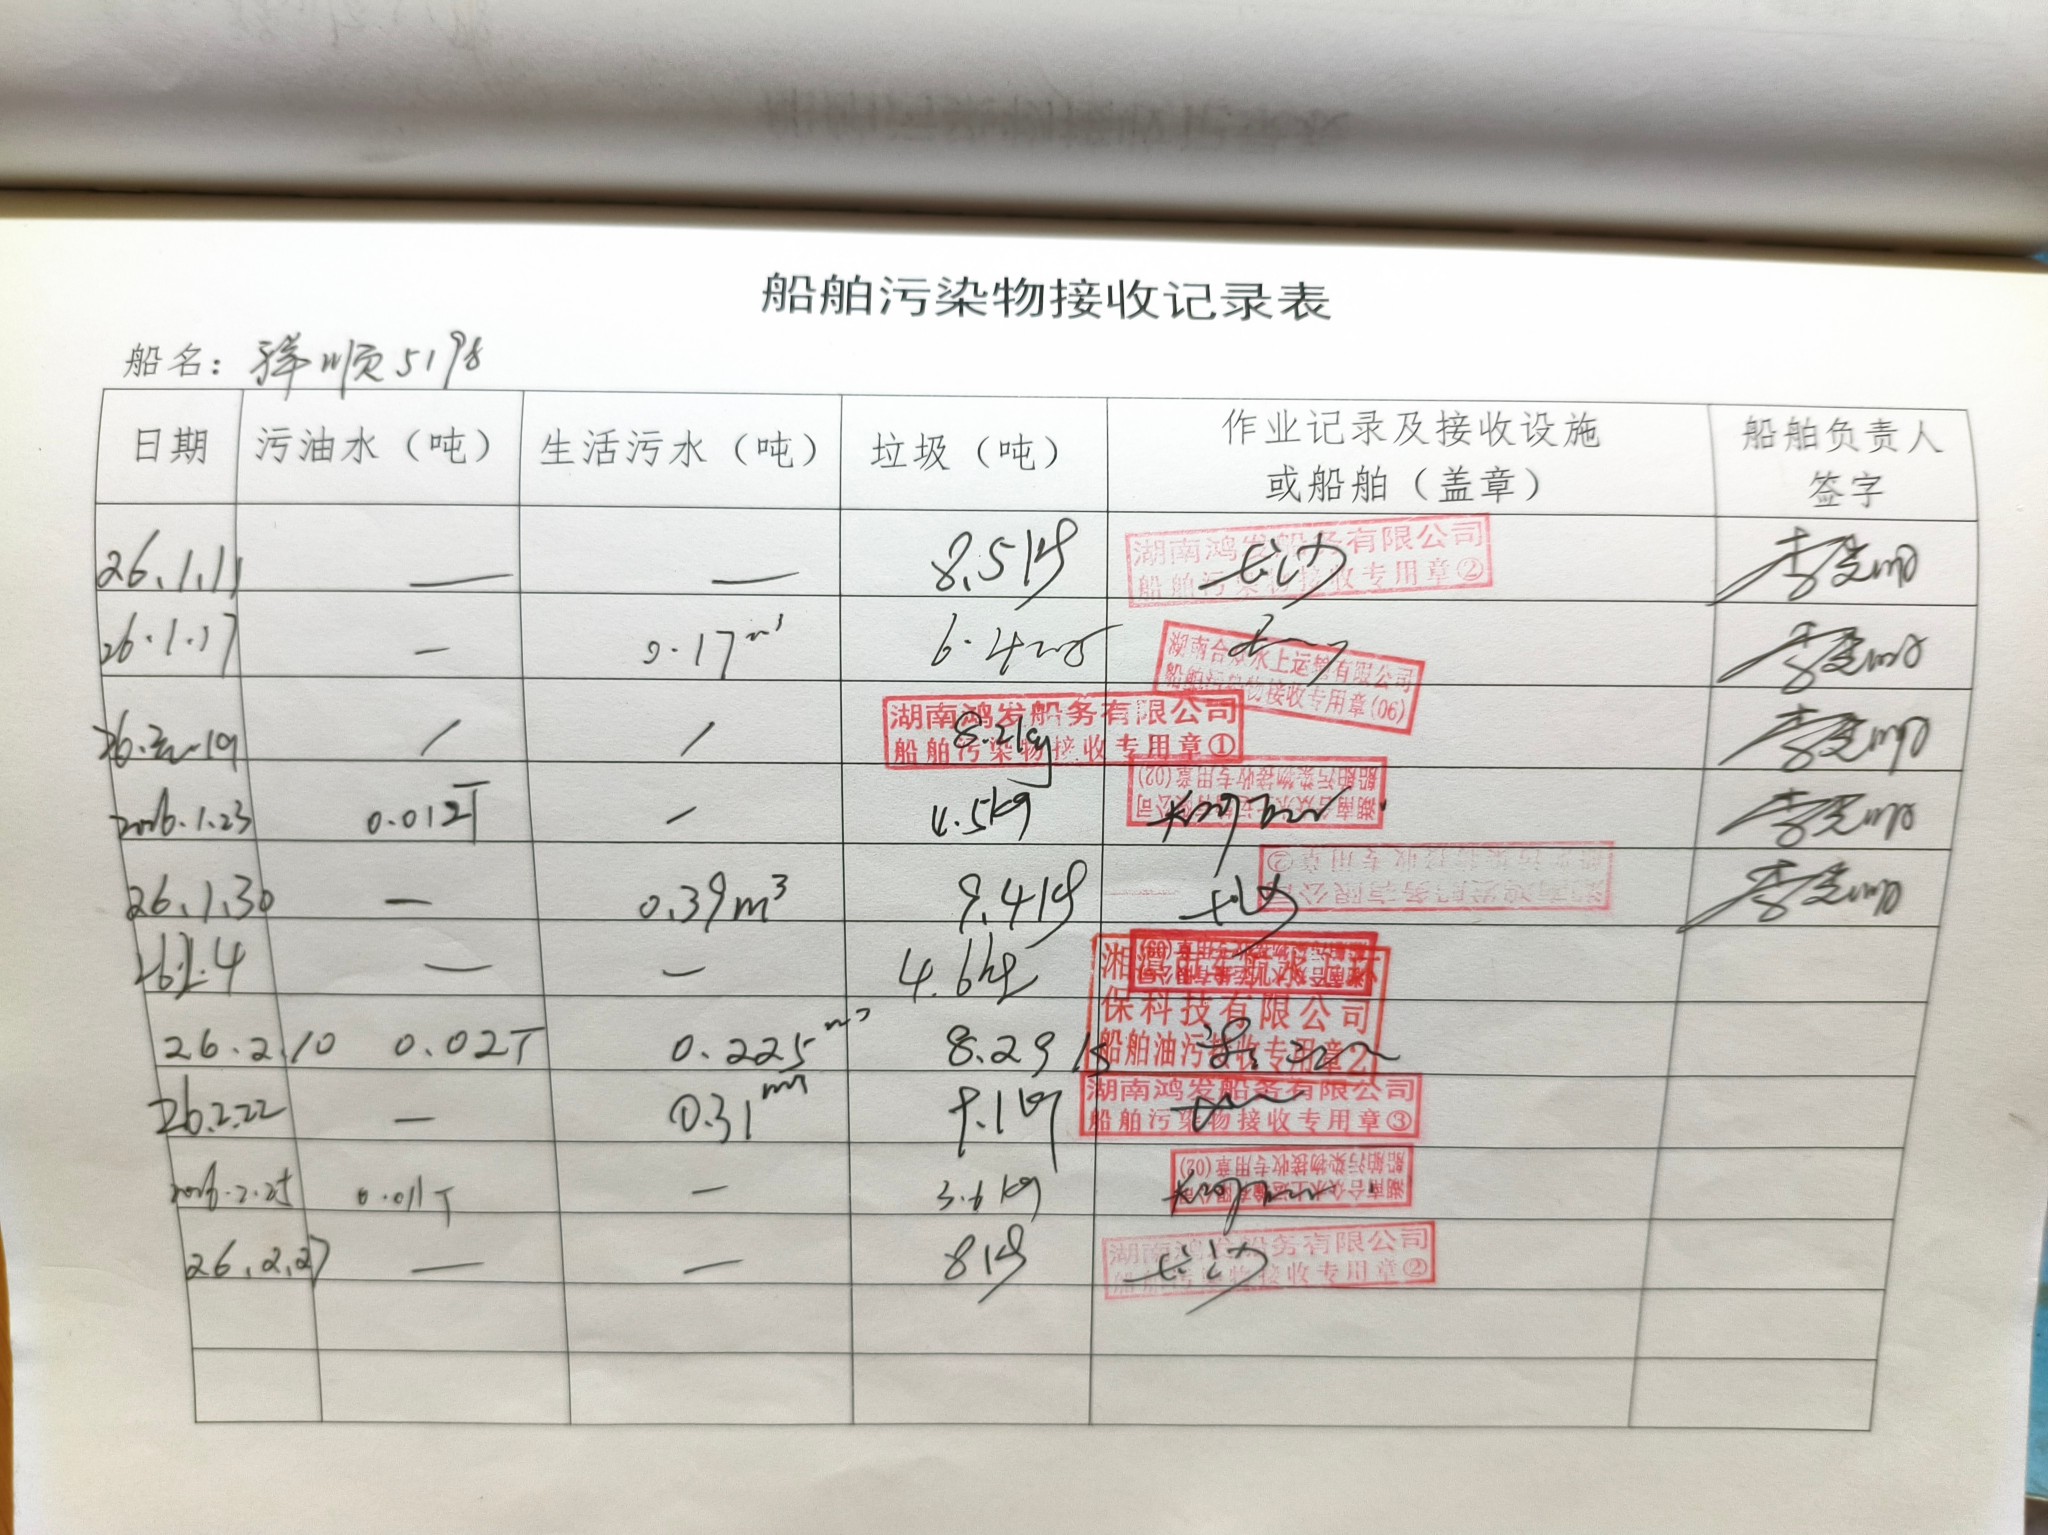 船舶污染物接收记录表
船名：祥顺5198
日期 污油水（吨） 生活污水（吨） 垃圾（吨） 作业记录及接收设施或船舶（盖章） 船舶负责人签字
26.1.11 — — 8.5kg 湖南鸿发船务有限公司 船舶污染物接收专用章② 长沙
26.1.17 — 0.17m³ 6.4 湖南合众水上运输有限公司 船舶污染物接收专用章(06)
/ / 8.2kg 湖南鸿发船务有限公司 船舶污染物接收专用章①
2026.1.23 0.012T / 4.5kg 湖南合众水上运输有限公司 船舶污染物接收专用章(02)
26.1.30 — 0.39m³ 9.4kg 湖南鸿发船务有限公司 船舶污染物接收专用章② 长沙
26.2.4 — — 4.6kg
26.2.10 0.02T 0.225m³ 8.29 保科技有限公司 船舶油污接收专用章2
26.2.22 — 0.31m³ 9.1kg 湖南鸿发船务有限公司 船舶污染物接收专用章③
2026.2.25 0.011T — 3.6kg 湖南合众水上运输有限公司 船舶污染物接收专用章(02)
26.2.27 — — 8kg 湖南鸿发船务有限公司 船舶污染物接收专用章② 长沙